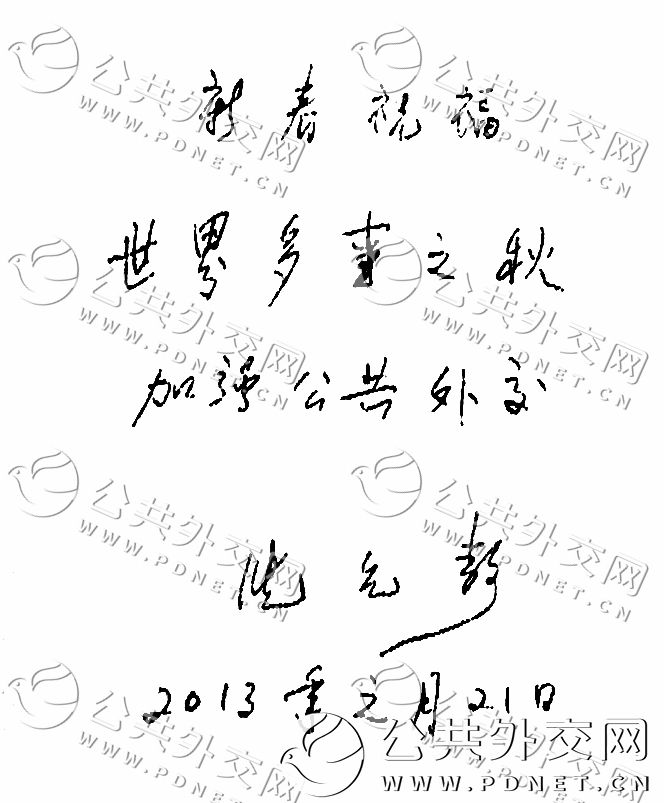 新春祝福
世界多事之秋
加强公共外交
陈元
2013年元月21日
公共外交网
WWW.PDNET.CN